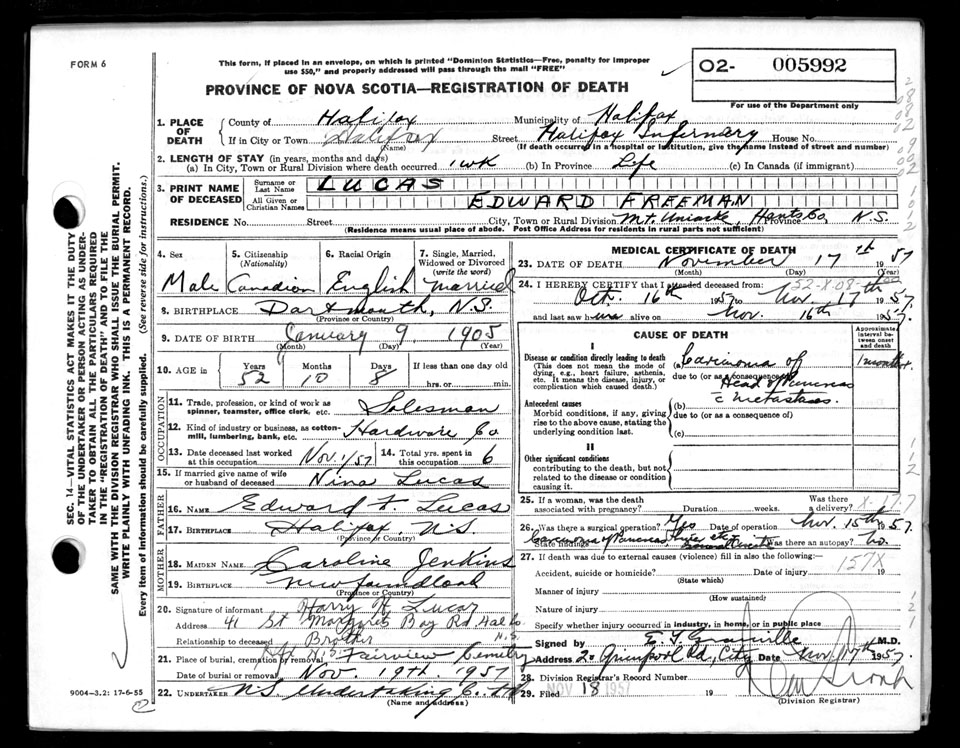 FORM 6
This form, if placed in an envelope, on which is printed "Dominion Statistics—Free, penalty for improper
use $50," and properly addressed will pass through the mail "FREE"
PROVINCE OF NOVA SCOTIA—REGISTRATION OF DEATH
02- 005992
For use of the Department only
1. PLACE OF DEATH
County of Halifax Municipality of Halifax
If in City or Town Halifax Street Halifax Infirmary House No.
(Name) (If death occurred in a hospital or institution, give the name instead of street and number)
2. LENGTH OF STAY (in years, months and days)
(a) In City, Town or Rural Division where death occurred 1 wk (b) In Province Life (c) In Canada (if immigrant)
3. PRINT NAME OF DECEASED
Surname or Last Name LUCAS
All Given or Christian Names EDWARD FREEMAN
RESIDENCE No. Street City, Town or Rural Division Mt. Uniacke, Hants Co, Province N.S.
(Residence means usual place of abode. Post Office Address for residents in rural parts not sufficient)
SEC. 14—VITAL STATISTICS ACT MAKES IT THE DUTY
OF THE UNDERTAKER OR PERSON ACTING AS UNDER-
TAKER TO OBTAIN ALL THE PARTICULARS REQUIRED
IN THE "REGISTRATION OF DEATH" AND TO FILE THE
SAME WITH THE DIVISION REGISTRAR WHO SHALL ISSUE THE BURIAL PERMIT.
WRITE PLAINLY WITH UNFADING INK. THIS IS A PERMANENT RECORD.
Every item of information should be carefully supplied. (See reverse side for instructions.)
4. Sex
Male
5. Citizenship
(Nationality)
Canadian
6. Racial Origin
English
7. Single, Married,
Widowed or Divorced
(write the word)
Married
8. BIRTHPLACE Dartmouth, N.S.
(Province or Country)
9. DATE OF BIRTH January 9 1905
(Month) (Day) (Year)
10. AGE in
Years Months Days If less than one day old
52 10 8 hrs. or min.
OCCUPATION
11. Trade, profession, or kind of work as
spinner, teamster, office clerk, etc. Salesman
12. Kind of industry or business, as cotton-
mill, lumbering, bank, etc. Hardware Co
13. Date deceased last worked
at this occupation Nov. 1/57
14. Total yrs. spent in
this occupation 6
15. If married give name of wife
or husband of deceased Nina Lucas
FATHER
16. Name Edward F. Lucas
17. BIRTHPLACE Halifax, N.S.
(Province or Country)
MOTHER
18. MAIDEN NAME Caroline Jenkins
19. BIRTHPLACE Newfoundland
(Province or Country)
20. Signature of informant Harry H. Lucas
Address 41 St Margarets Bay Rd Hal Co.
N.S.
Relationship to deceased Brother
21. Place of burial, cremation or removal Fairview Cemetery
Date of burial or removal Nov. 19th. 1957
22. UNDERTAKER N.S. Undertaking Co. Ltd
(Name and address)
9004-3.2: 17-6-55
MEDICAL CERTIFICATE OF DEATH
23. DATE OF DEATH November 17th 1957
(Month) (Day) (Year)
24. I HEREBY CERTIFY that I attended deceased from
Oct. 16th 1957 to Nov. 17th 1957
and last saw him alive on Nov. 16th 1957.
CAUSE OF DEATH
Approximate
interval be-
tween onset
and death
I
Disease or condition directly leading to death
(This does not mean the mode of
dying, e.g., heart failure, asthenia,
etc. It means the disease, injury, or
complication which caused death.)
(a) Carcinoma of
due to (or as a consequence of)
Head of Pancreas
c metastases.
Antecedent causes
Morbid conditions, if any, giving
rise to the above cause, stating the
underlying condition last.
(b)
due to (or as a consequence of)
(c)
II
Other significant conditions
contributing to the death, but not
related to the disease or condition
causing it.
25. If a woman, was the death
associated with pregnancy? Duration weeks. Was there
a delivery?
26. Was there a surgical operation? Yes Date of operation Nov. 15th 1957.
State findings Carcinoma of Pancreas Was there an autopsy? No.
27. If death was due to external causes (violence) fill in also the following:
157X
Accident, suicide or homicide? Date of injury 19
(State which)
Manner of injury
(How sustained)
Nature of injury
Specify whether injury occurred in industry, in home, or in public place
Signed by E. F. Granville M.D.
Address City Date Nov. 17th 1957.
28. Division Registrar's Record Number
29. Filed NOV 18 1957 19
(Division Registrar)